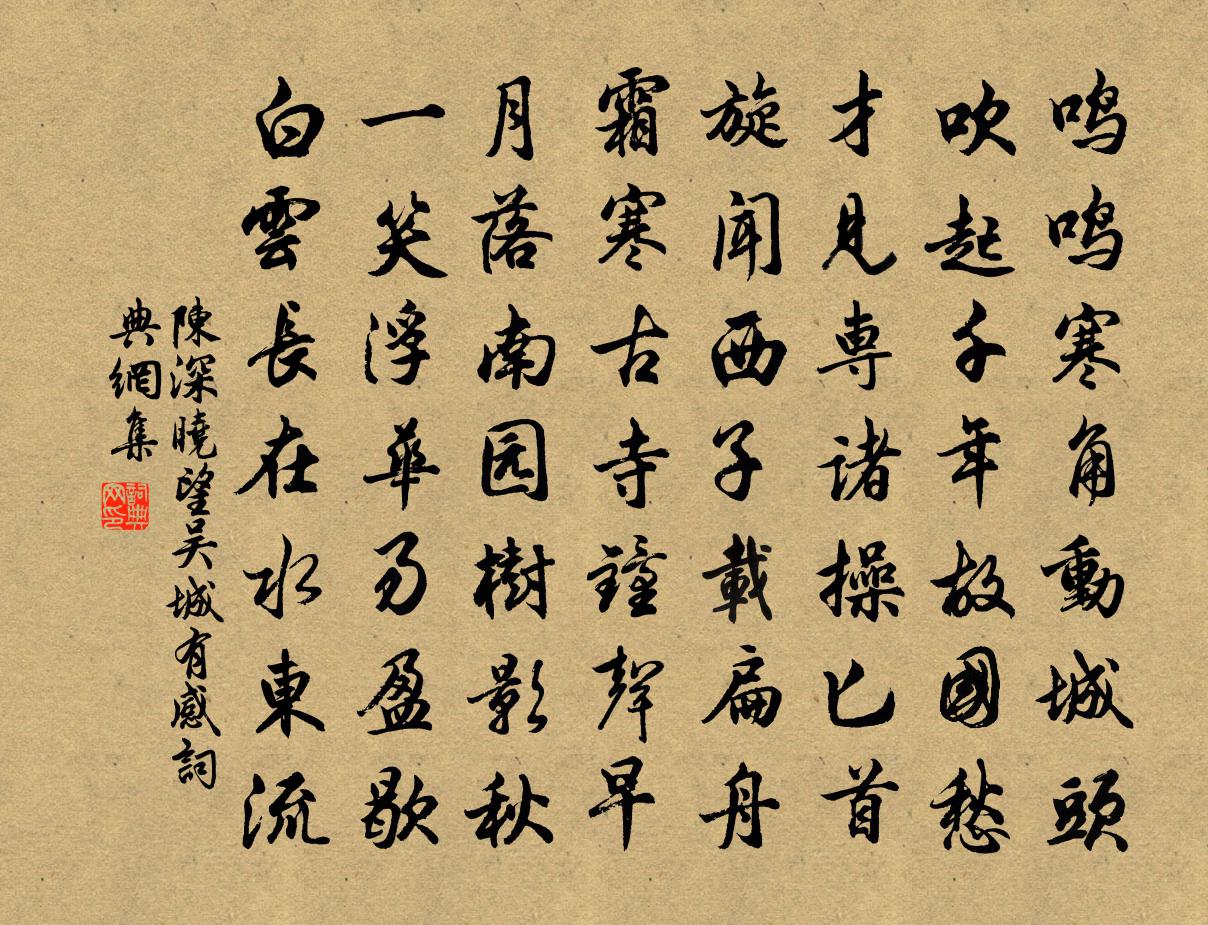 鸣鸣寒角動城頭
吹起千年故國愁
才見專諸操匕首
旋聞西子載扁舟
霜寒古寺鐘聲早
月落南园樹影秋
一笑浮華易盈歇
白雲長在水東流
陳深曉望吴城有感詞
典網集
詞典
网印